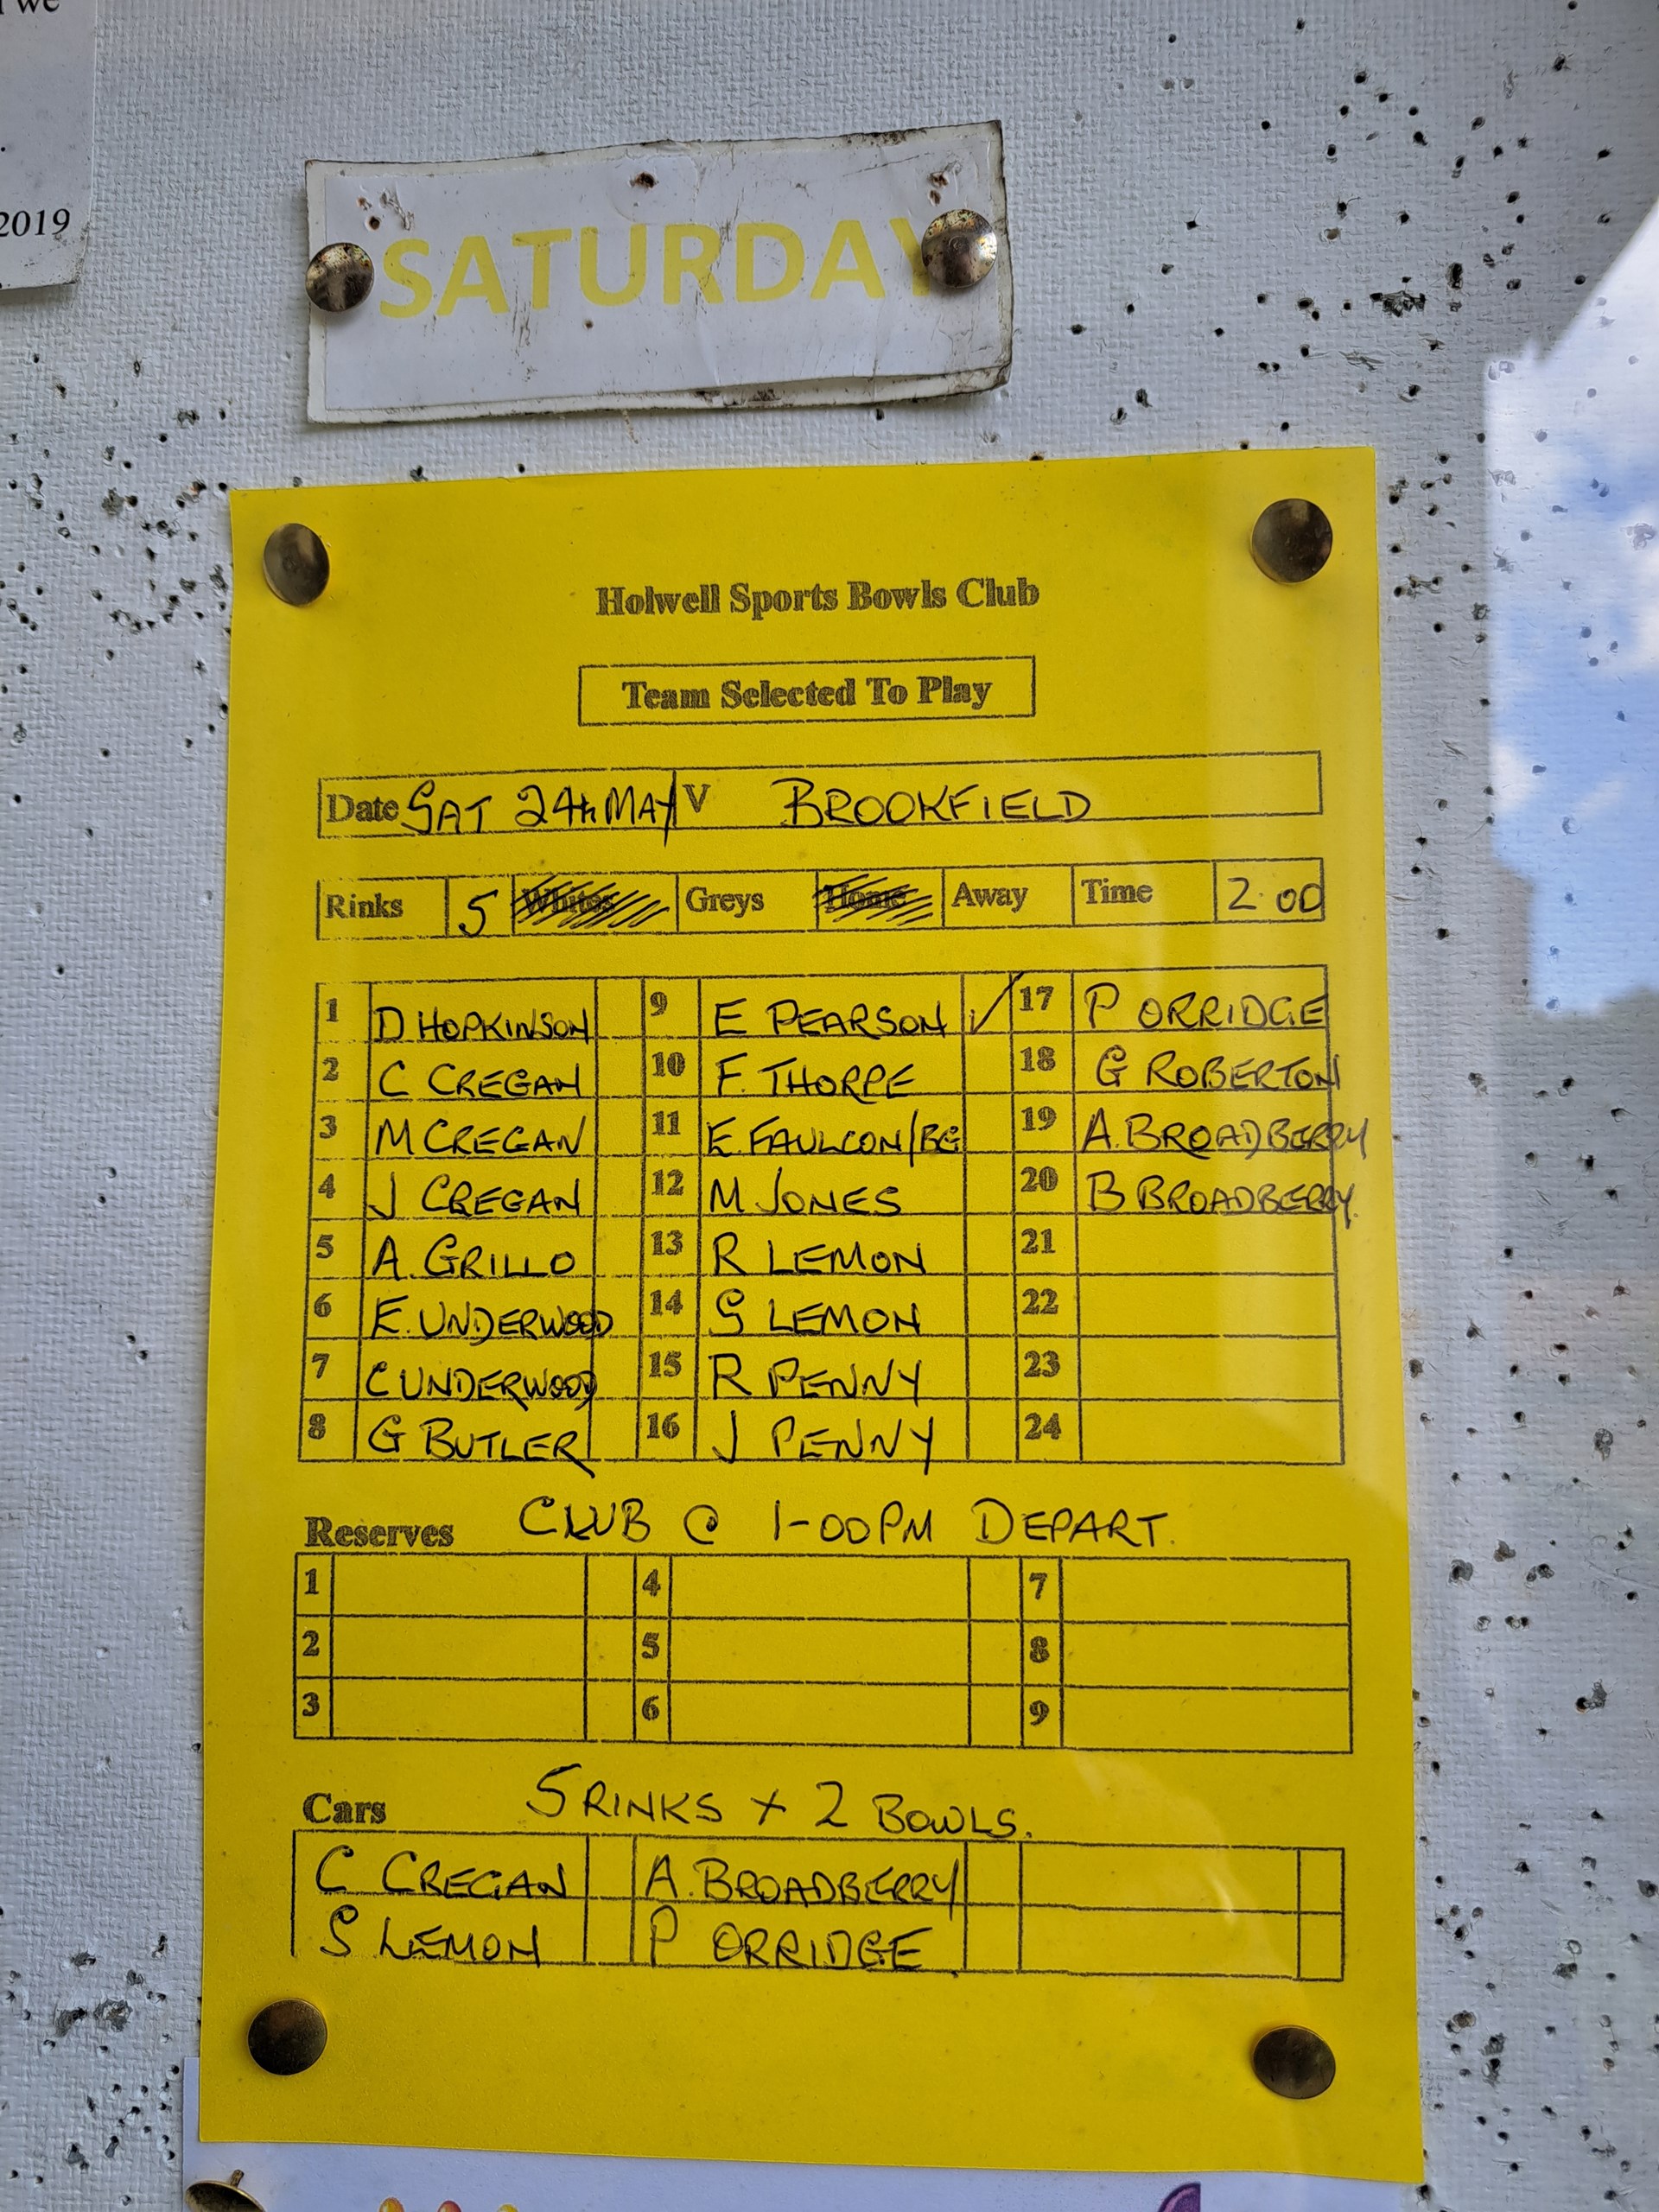 we
2019
SATURDAY
Holwell Sports Bowls Club
Team Selected To Play
Date SAT 24th MAY V BROOKFIELD
Rinks 5 Whites Greys Home Away Time 2.00
1 D HOPKINSON 9 E PEARSON ✓ 17 P ORRIDGE
2 C CREGAN 10 F. THORPE 18 G ROBERTON
3 M CREGAN 11 E. FAULCON/BG 19 A. BROADBERRY
4 J CREGAN 12 M JONES 20 B BROADBERRY.
5 A. GRILLO 13 R LEMON 21
6 E. UNDERWOOD 14 S LEMON 22
7 C UNDERWOOD 15 R PENNY 23
8 G BUTLER 16 J PENNY 24
Reserves CLUB @ 1-00PM DEPART.
1 4 7
2 5 8
3 6 9
Cars 5 RINKS x 2 BOWLS.
C CREGAN A. BROADBERRY
S LEMON P ORRIDGE